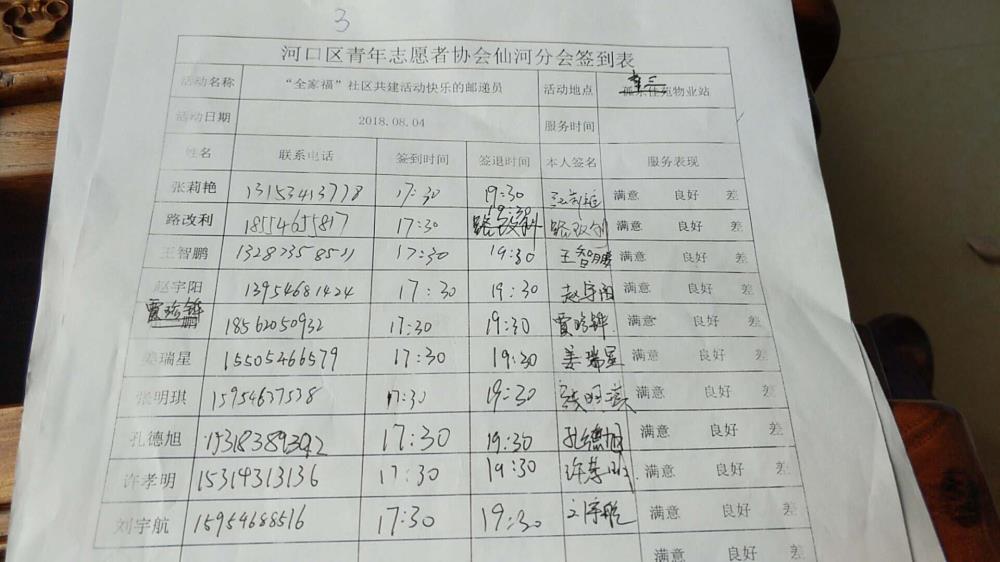 3
河口区青年志愿者协会仙河分会签到表
活动名称 “全家福”社区共建活动快乐的邮递员 活动地点 孤东佳苑物业站
活动日期 2018.08.04 服务时间
姓名 联系电话 签到时间 签退时间 本人签名 服务表现
张莉艳 13153413778 17:30 19:30 满意 良好 差
路改利 18554655817 17:30 19:30 路改利 满意 良好 差
王智鹏 17:30 19:30 王智鹏 满意 良好 差
赵宇阳 13954681424 17:30 19:30 赵宇阳 满意 良好 差
鹏 18562050932 17:30 19:30 满意 良好 差
姜瑞星 15505466579 17:30 19:30 姜瑞星 满意 良好 差
张明琪 15954637538 17:30 19:30 张明琪 满意 良好 差
孔德旭 17:30 19:30 孔德旭 满意 良好 差
许孝明 15314313136 17:30 19:30 许孝明 满意 良好 差
刘宇航 15954688516 17:30 19:30 刘宇航 满意 良好 差
满意 良好 差